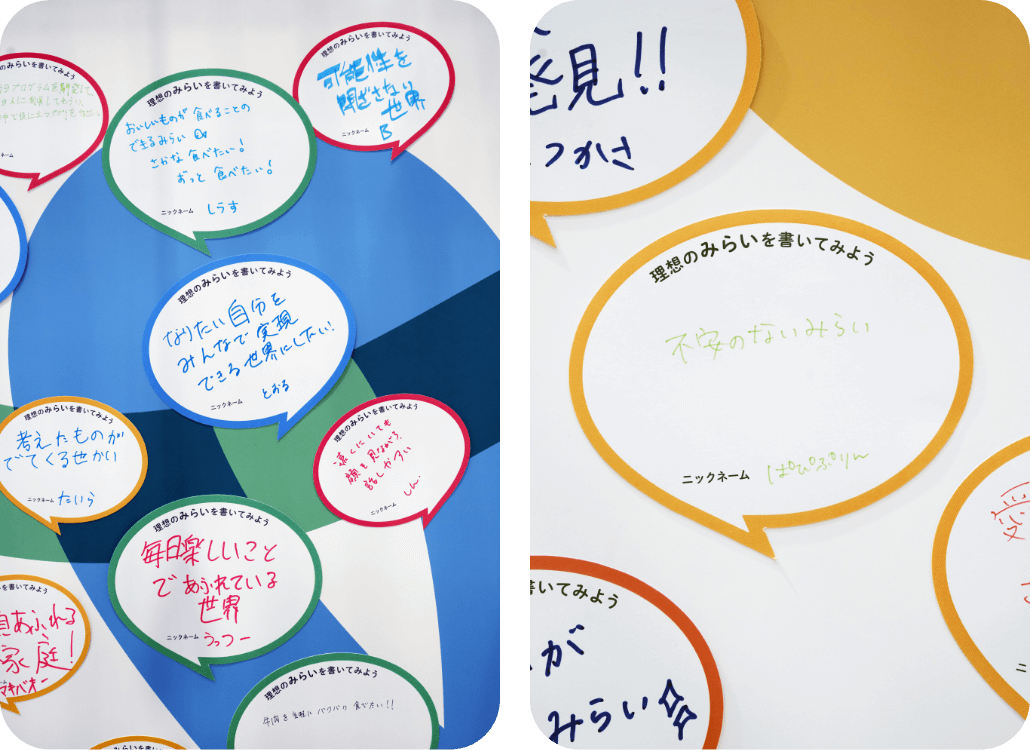 のみらいを書いてみよう
ニックネーム
理想のみらいを書いてみよう
おいしいものが食べることの
できるみらい
さかな食べたい!
ずっと食べたい!
ニックネーム しらす
理想のみらいを書いてみよう
可能性を
閉ざさない
世界
ニックネーム B
理想のみらいを書いてみよう
なりたい自分を
みんなで実現
できる世界にしたい!
ニックネーム とおる
理想のみらいを書いてみよう
考えたものが
でてくる世かい
ニックネーム たいら
理想のみらいを書いてみよう
遠くにいても
顔を見ながら
話しやすい
ニックネーム しん
理想のみらいを書いてみよう
毎日楽しいこと
であふれている
世界
ニックネーム うっつー
いを書いてみよう
顔あふれる
家庭!
マキバオー
理想のみらいを書いてみよう
バクバク食べたい!!
理想のみらいを書いてみよう
発見!!
つかさ
理想のみらいを書いてみよう
不安のないみらい
ニックネーム ぱぴぷりん
いてみよう
が
みらい☆
愛
ニ